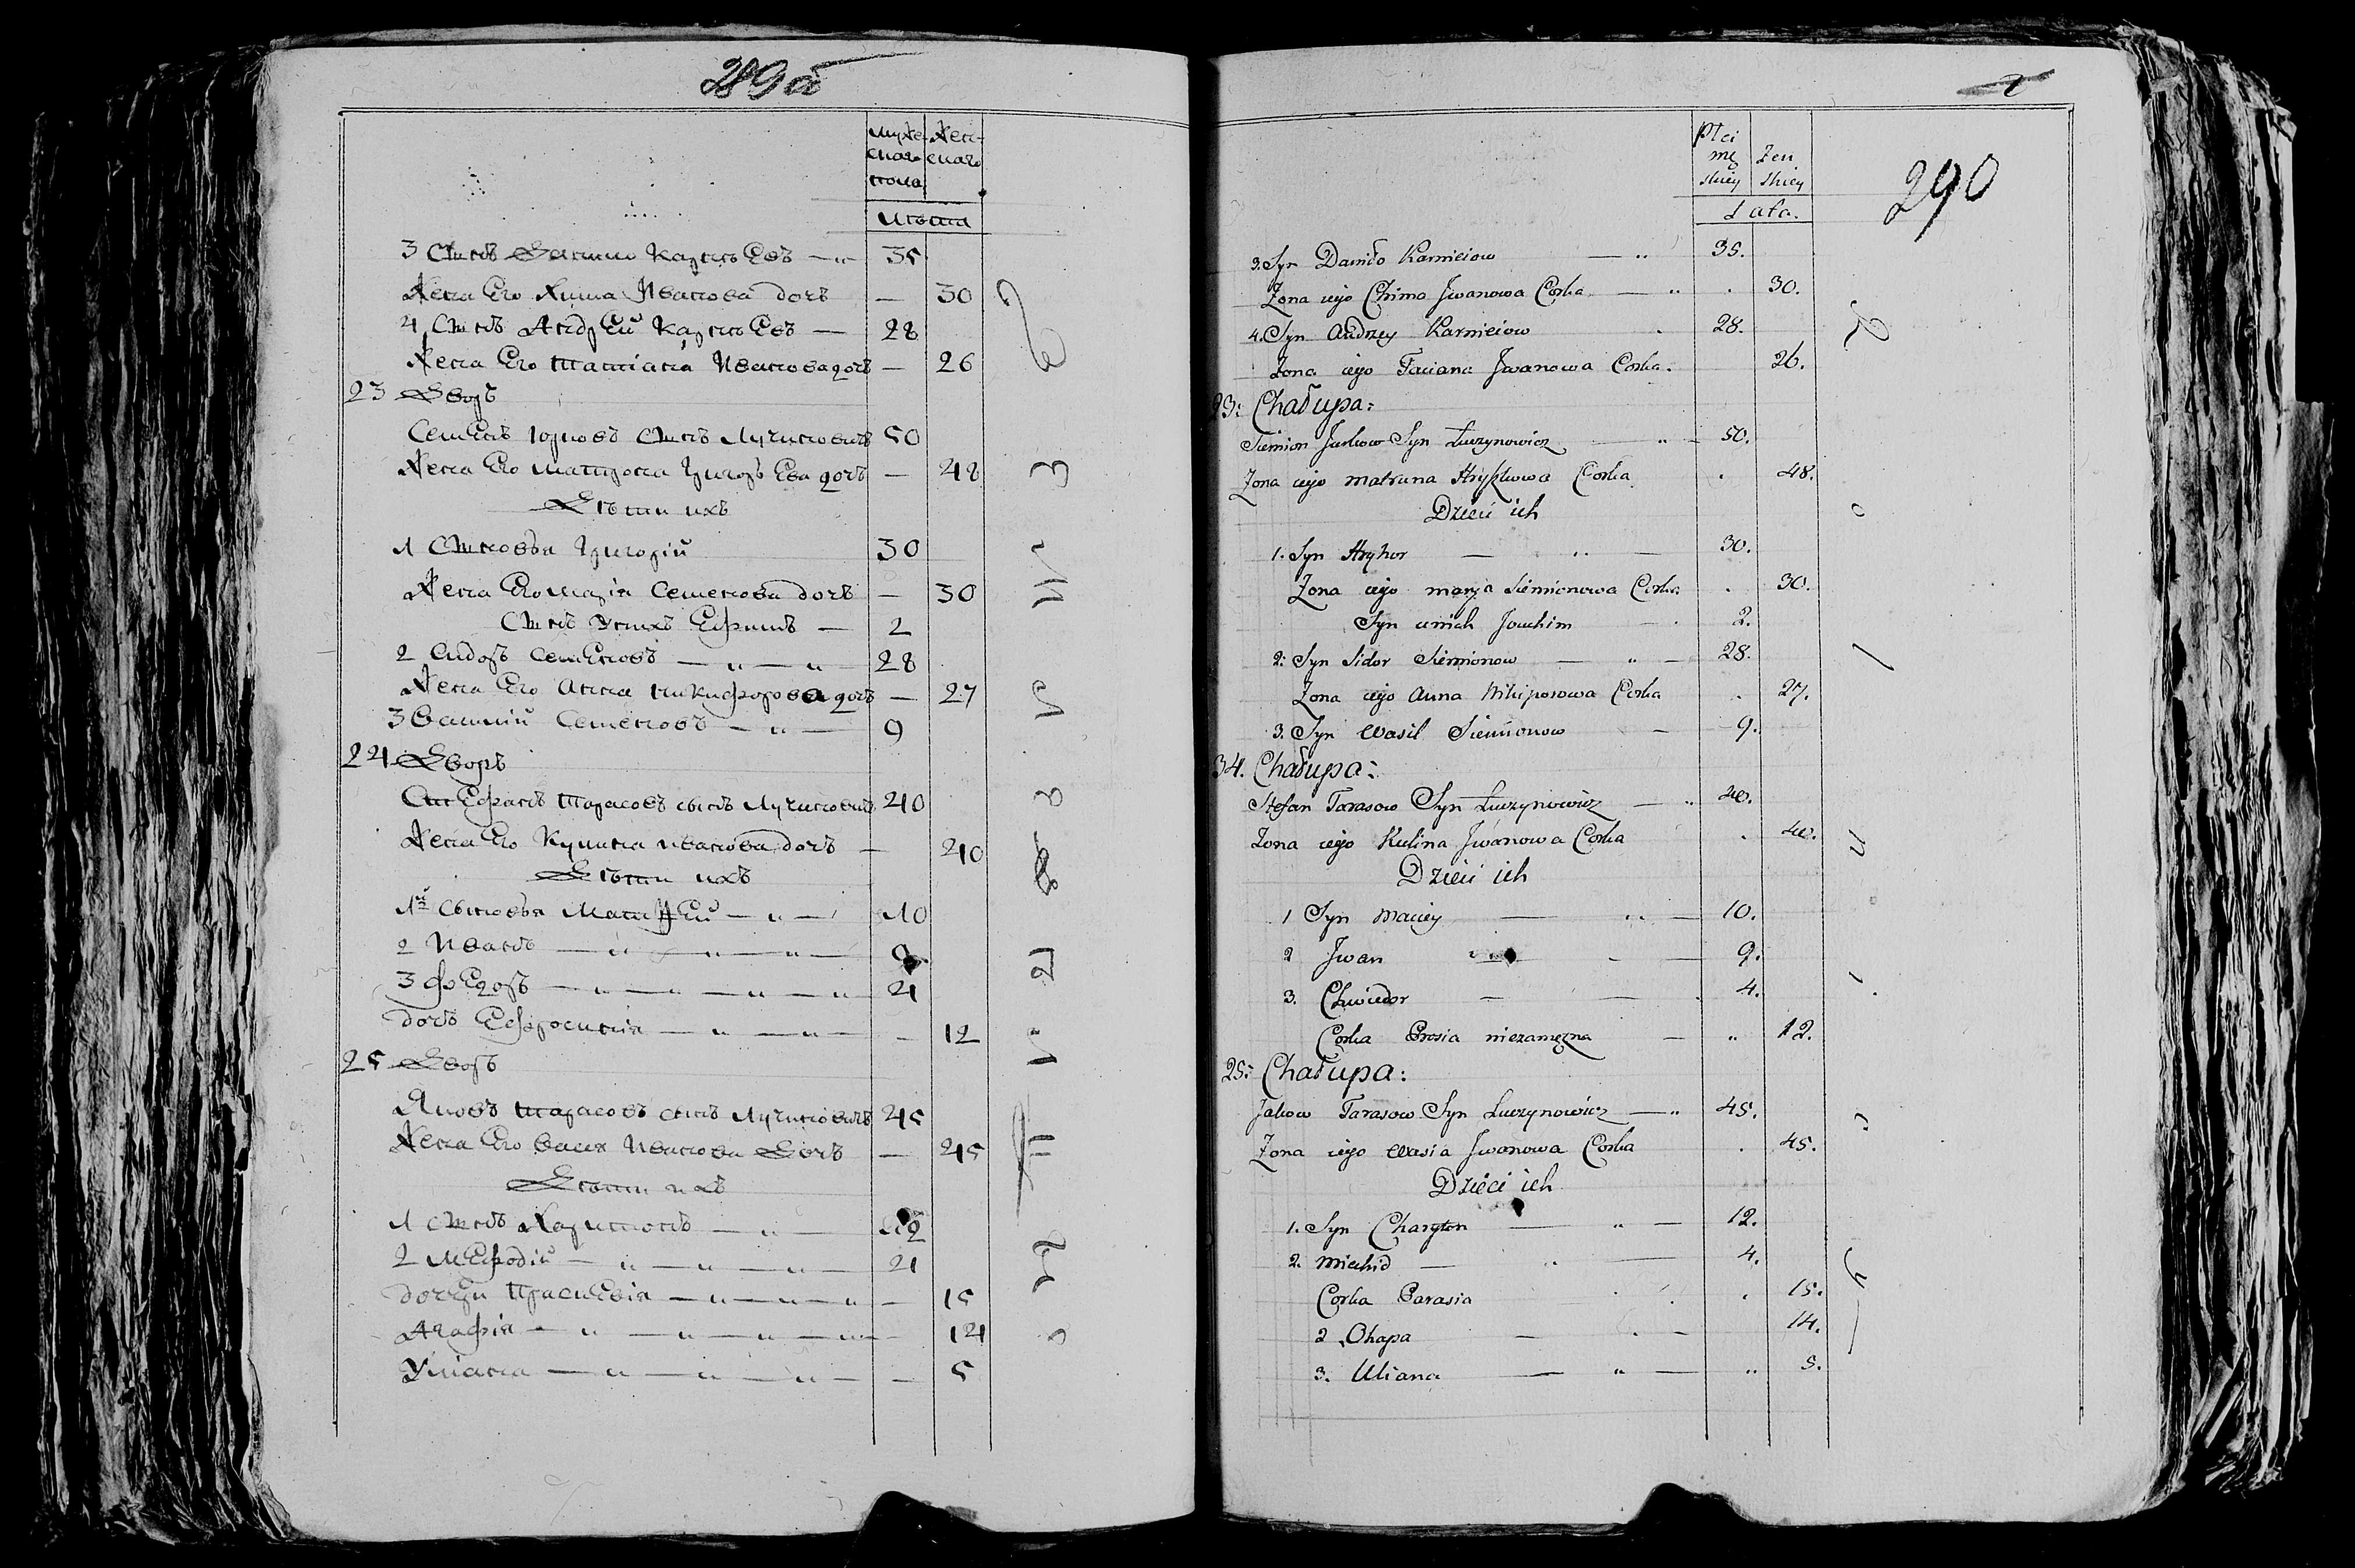 289 об
Мужескаго пола
Женскаго
Лѣта
3 Сынъ Данило Карнѣевъ 35
Жена Его Хима Иванова дочь — 30
4 Сынъ Андрѣй Карнѣевъ — 28
Жена Его Татіана Иванова дочь — 26
23 Дворъ
Семенъ Юрковъ сынъ Лучиновичъ 50
Жена Его Матрона Григорьева дочь — 48
Дѣти ихъ
1 Сыновья Григорій 30
Жена Его Марія Семенова дочь — 30
Сынъ у нихъ Ефимъ — 2
2 Сидоръ Семеновъ — „ — „ 28
Жена Его Анна Никифорова дочь — 27
3 Василій Семеновъ — „ — 9
24 Дворъ
Стефанъ Тарасовъ сынъ Лучиновичъ 40
Жена Его Кулина Иванова дочь — 40
Дѣти ихъ
1й Сыновья Матѳей — „ — 10
2 Иванъ — „ — „ — „ — 9
3 Федоръ — „ — „ — „ — „ 4
дочь Ефросинія — „ — „ — 12
25 Дворъ
Яковъ Тарасовъ сынъ Лучиновичъ 45
Жена Его Вася Иванова Дочь — 45
Дѣти ихъ
1 Сынъ Харитонъ — „ — 12
2 Мефодій — „ — „ — „ — 4
дочери Прасковія — „ — „ — „ — 15
Агафія — „ — „ — „ — 14
Уліана — „ — „ — „ — 5
290
Płci
mę
skiey
Żeń
skiey
Lata.
3. Syn Daniło Karnieiow — „ 35.
Żona iego Chima Jwanowa Corka — „ . 30.
4. Syn Andrzey Karnieiow . 28.
Żona iego Taciana Jwanowa Corka. 26.
23: Chałupa:
Siemion Jurkow Syn Łuczynowicz — „ — 50.
Żona iego Matruna Hryhorowa Corka . 48.
Dzieci ich
1. Syn Hryhor — „ — 30.
Żona iego Marya Siemionowa Corka . 30.
Syn u nich Joachim — . 2.
2: Syn Sidor Siemionow — „ — 28.
Żona iego Anna Nikiporowa Corka . 27.
3. Syn Wasil Siemionow — 9.
34. Chałupa:
Stefan Tarasow Syn Łuczynowicz — „ 40.
Żona iego Kulina Jwanowa Corka . 40.
Dzieci ich
1 Syn Maciey — „ — 10.
2 Jwan — 9.
3. Chwiedor — — . 4.
Corka Prosia niezamęzna — „ 12.
25: Chałupa:
Jakow Tarasow Syn Łuczynowicz — „ 45.
Żona iego Wasia Jwanowa Corka . 45.
Dzieci ich
1. Syn Charyton — „ — 12.
2. — „ — 4.
Corka Parasia . 15.
2 Ohapa — „ — 14.
3. Uliana — „ — „ 5.